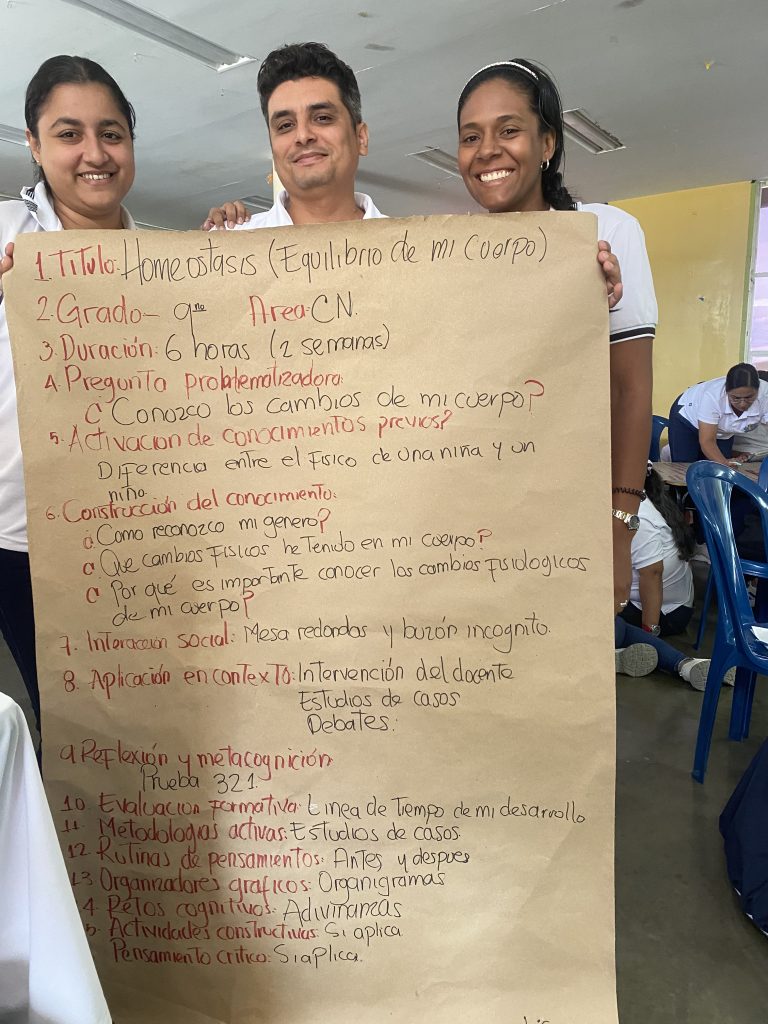 1. Titulo: Homeostasis (Equilibrio de mi cuerpo)
2. Grado- 9no Area: CN.
3. Duración: 6 horas (2 semanas)
4. Pregunta problematizadora:
¿Conozco los cambios de mi cuerpo?
5. Activacion de conocimientos previos?
Diferencia entre el fisico de una niña y un
niño.
6. Construcción del conocimiento:
¿Como reconozco mi genero?
¿Que cambios fisicos he tenido en mi cuerpo?
¿Por qué es importante conocer los cambios fisiologicos
de mi cuerpo?
7. Interacción social: Mesa redondas y buzón incognito.
8. Aplicación en contexto: Intervención del docente
Estudios de casos
Debates.
9. Reflexión y metacognición
Prueba 321.
10. Evaluacion formativa: Linea de tiempo de mi desarrollo
11. Metodologias activas: Estudios de casos
12. Rutinas de pensamientos: Antes y despues
13. Organizadores graficos: Organigramas
4. Retos cognitivos: Adivinanzas
5. Actividades constructivas: Si aplica
Pensamiento critico: Si aplica.